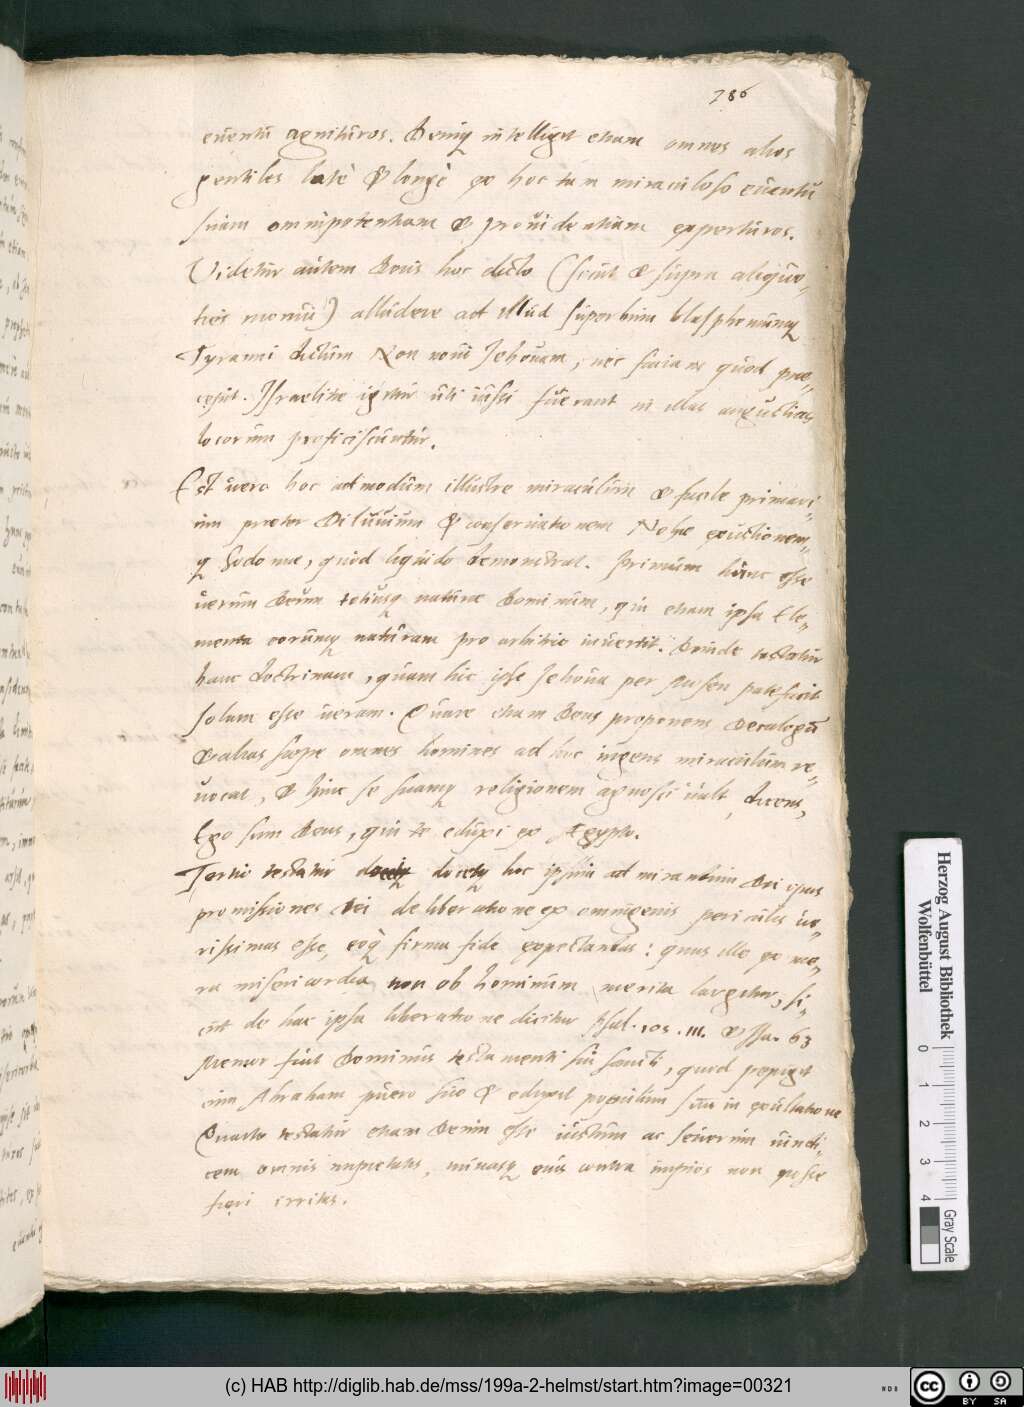 286
euentu agnituros. Deniq intelligit etiam omnes alios
gentiles latè & longè ex hoc tam miraculoso euentu
suam omnipotentiam & prouidentiam experturos.
Videtur autem Deus hoc dicto (sicut & supra aliquo-
ties monui) alludere ad illud superbum blasphemumq
Tyranni dictum Non noui Jehouam, nec faciam quod prae-
cepit. Israelitae igitur uti iussi fuerant in illas angustias
locorum proficiscuntur.
Est vero hoc admodum illustre miraculum & facile primari-
um praeter Diluuium & conseruationem Nohae euictionem-
q Sodomae, quod liquido demonstrat. Primum hunc esse
uerum Deum totiusq naturae Dominum, qui etiam ipsa Ele-
menta eorumq naturam pro arbitrio inuertit. Deinde testatur
hanc doctrinam, quam hic ipse Jehoua per Mosen patefacit
solam esse ueram. Quare etiam Deus proponens Decalogū
& alias saepe omnes homines ad hoc ingens miraculum re-
uocat, & hinc se suamq religionem agnosci uult, dicens,
Ego sum Deus, qui te eduxi ex Aegypto.
Tertio testatur docetq hoc ipsum admirandum Dei opus
promissiones Dei de liberatione ex omnigenis periculis ue-
rissimas esse, eoq firma fide expectandas: quas ille ex me-
ra misericordia non ob hominum merita largitur, si-
cut de hac ipsa liberatione dicitur Psal. 105. 111. & Isa. 63
Memor fuit Dominus testamenti sui sancti, quod pepigit
cum Abraham puero suo & eduxit populum suū in exultatione
Quarto testatur etiam Deum esse iustum ac seuerum uindi-
cem omnis impietatis, minasq eius contra impios non posse
fieri irritas.
Herzog August Bibliothek
Wolfenbüttel
0 1 2 3 4
Gray Scale
(c) HAB http://diglib.hab.de/mss/199a-2-helmst/start.htm?image=00321
cc BY SA